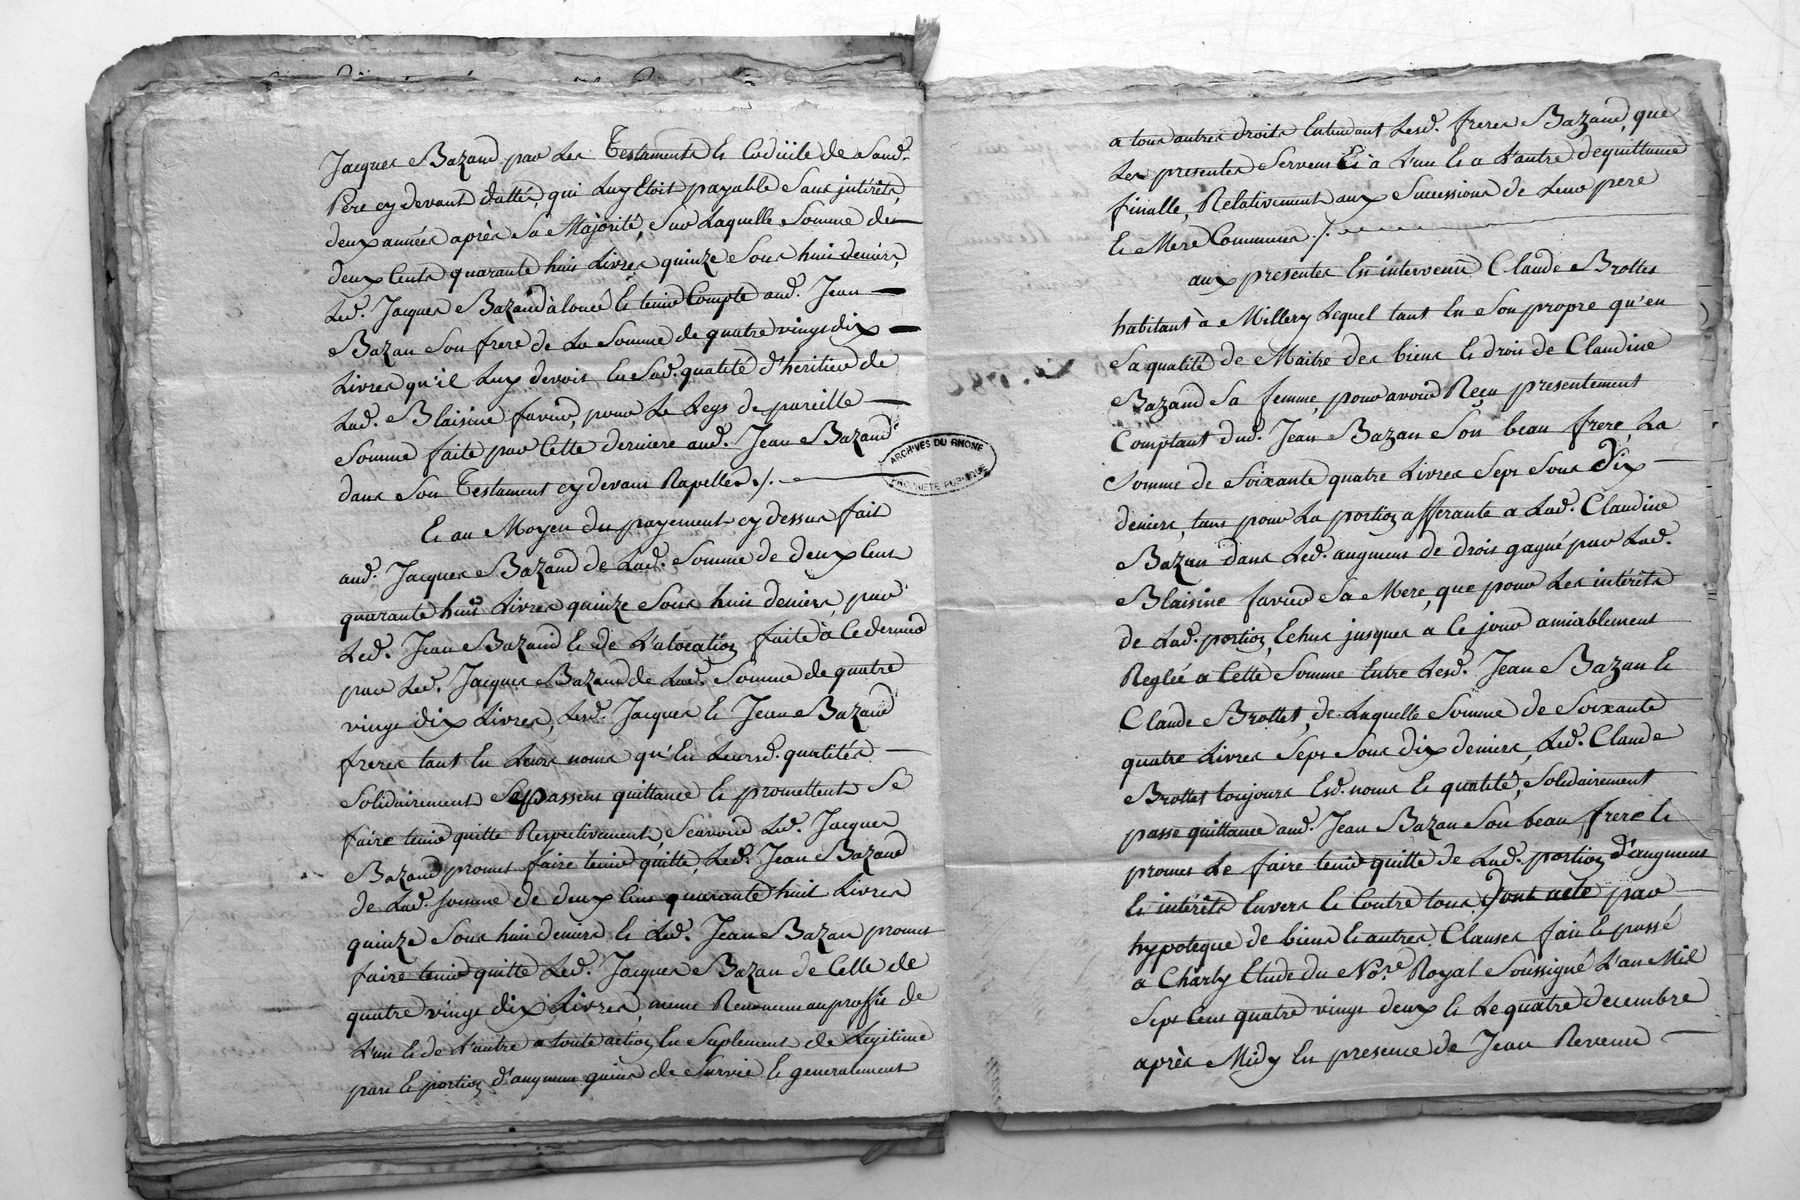 Jacques Bazand par les Testaments et Codiïile de Sond.
Pere cy devant datté, qui luy Etoit payable Sans intérêts,
deux années après Sa Majorité, Sur laquelle Somme de
deux Cents quarante huit Livres quinze Sous huit deniers,
Led. Jacques Bazand à loué et tenu Compte aud. Jean
Bazan Son frere de la Somme de quatre vingt dix
Livres qu'il luy devoit En Sad. qualité d'héritier de
Lad. Blaisine favier, pour le Legs de pareille
Somme faite par Cette derniere aud. Jean Bazand
dans Son Testament cy devant Rapellé ./.
Et au Moyen du payement cy dessus fait
aud. Jacques Bazand de Lad. Somme de deux Cent
quarante huit Livres quinze Sous huit deniers, par
Led. Jean Bazand et de l'alocation faite à Ce dernier
par Led. Jacques Bazand de Lad. Somme de quatre
vingt dix Livres, Lesd. Jacques et Jean Bazand
freres tant En Leurs noms qu'En Leursd. qualités
Solidairement Se passent quittance et promettent Se
faire tenir quitte Respectivement, Scavoir Led. Jacques
Bazand promet faire tenir quitte, Led. Jean Bazand
de Lad. somme de deux Cent quarante huit Livres
quinze Sous huit deniers et Led. Jean Bazan promet
faire tenir quitte Led. Jacques Bazan de Celle de
quatre vingt dix Livres, meme Renoncent au proffit de
L'un et de L'autre a toute action En Suplement de Legitime
part et portion d'augment gains de Survie et generalement
ARCHIVES DU RHONE
PROPRIETE PUBLIQUE
a tous autres droits Entendant Lesd. freres Bazand, que
Les presentes Servent Et à L'un Et a L'autre de quittance
finalle, Relativement aux Sucessions de Leur pere
Et Mere Communs ./.
aux presentes Est intervenu Claude Brottes
habitant à Millery Lequel tant En Son propre qu'en
Sa qualité de Maitre des biens et droit de Claudine
Bazand Sa femme, pour avoir Reçu presentement
Comptant dud. Jean Bazan Son beau frere, La
Somme de Soixante quatre Livres Sept Sous dix
deniers, tant pour La portion afferante a Lad. Claudine
Bazan dans Led. augment de droit gagné par Lad.
Blaisine favier Sa Mere, que pour Les intérêts
de Lad. portion, Echus jusques a Ce jour amiablement
Reglée a Cette Somme Entre Lesd. Jean Bazan et
Claude Brottes, de Laquelle Somme de Soixante
quatre Livres Sept Sous dix deniers, Led. Claude
Brottes toujours Esd. noms et qualité, Solidairement
passe quittance aud. Jean Bazan Son beau frere et
promet Le faire tenir quitte de Lad. portion d'augment
et intérêts Envers et Contre tous. Dont acte par
hypoteque de biens et autres Clauses fait et passé
a Charly Etude du No.re Royal Soussigné L'an Mil
Sept Cent quatre vingt deux et Le quatre decembre
après Midy En presence de Jean Revenu